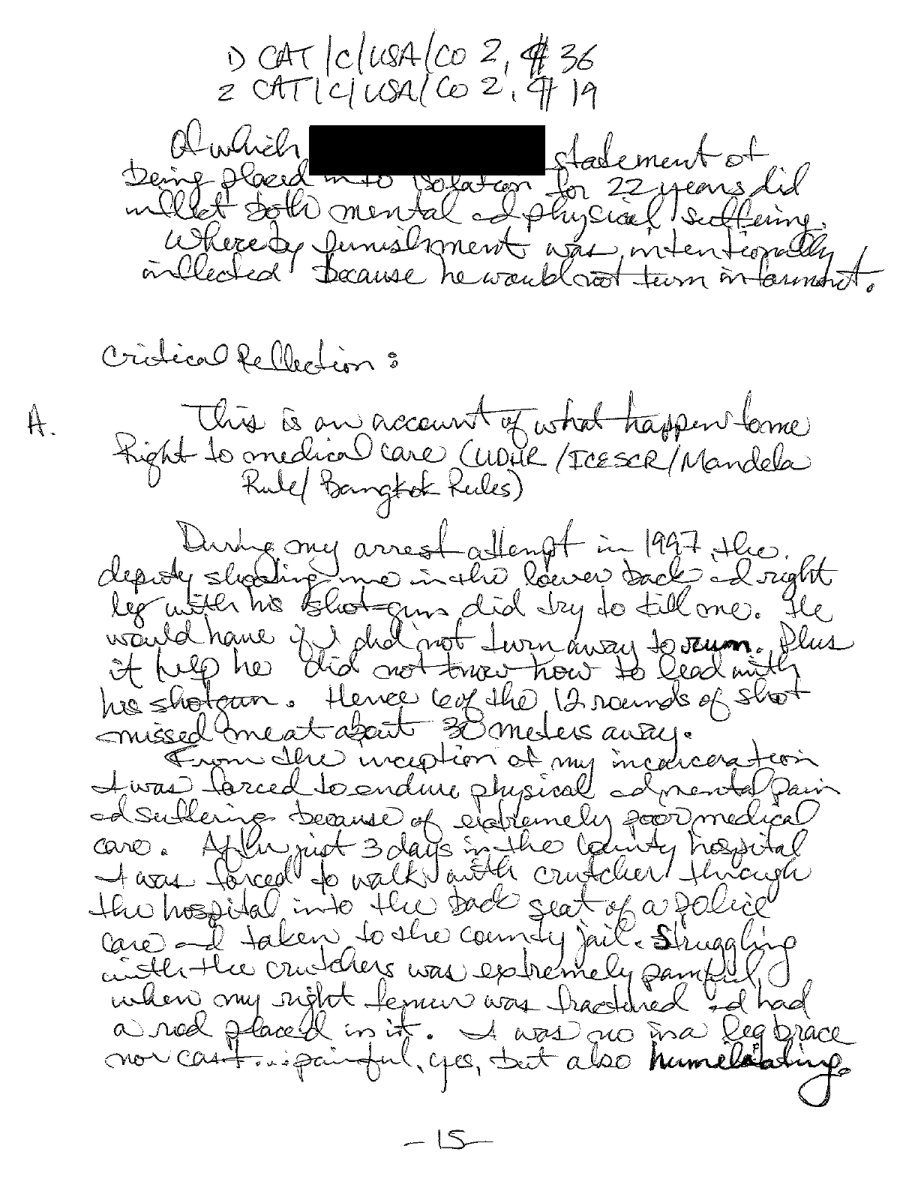 1) CAT/C/USA/CO 2, ¶ 36
2 CAT/C/USA/CO 2, ¶ 19
Of which statement of
being placed into isolation for 22 years did
inflect both mental ad physical suffering.
Whereby punishment was intentionally
inflected because he would not turn informant.
Critical Reflection:
A. This is an account of what happen to me
Right to medical care (UDHR/ICESCR/Mandela
Rule/Bangkok Rules)
During my arrest attempt in 1997, the
deputy shooting me in the lower back ad right
leg with his shot-gun did try to kill me. He
would have if I did not turn away to run. Plus
it help he did not know how to lead with
his shotgun. Hence 6 of the 12 rounds of shot
missed me at about 30 meters away.
From the inception of my incarceration
I was forced to endure physical ad mental pain
ad suffering because of extremely poor medical
care. After just 3 days in the county hospital
I was forced to walk with crutches through
the hospital into the back seat of a police
care ad taken to the county jail. Struggling
with the crutchers was extremely painful,
when my right femur was fractured ad had
a rod placed in it. I was no in a leg brace
nor cast... painful, yes, but also humeliating.
-15-